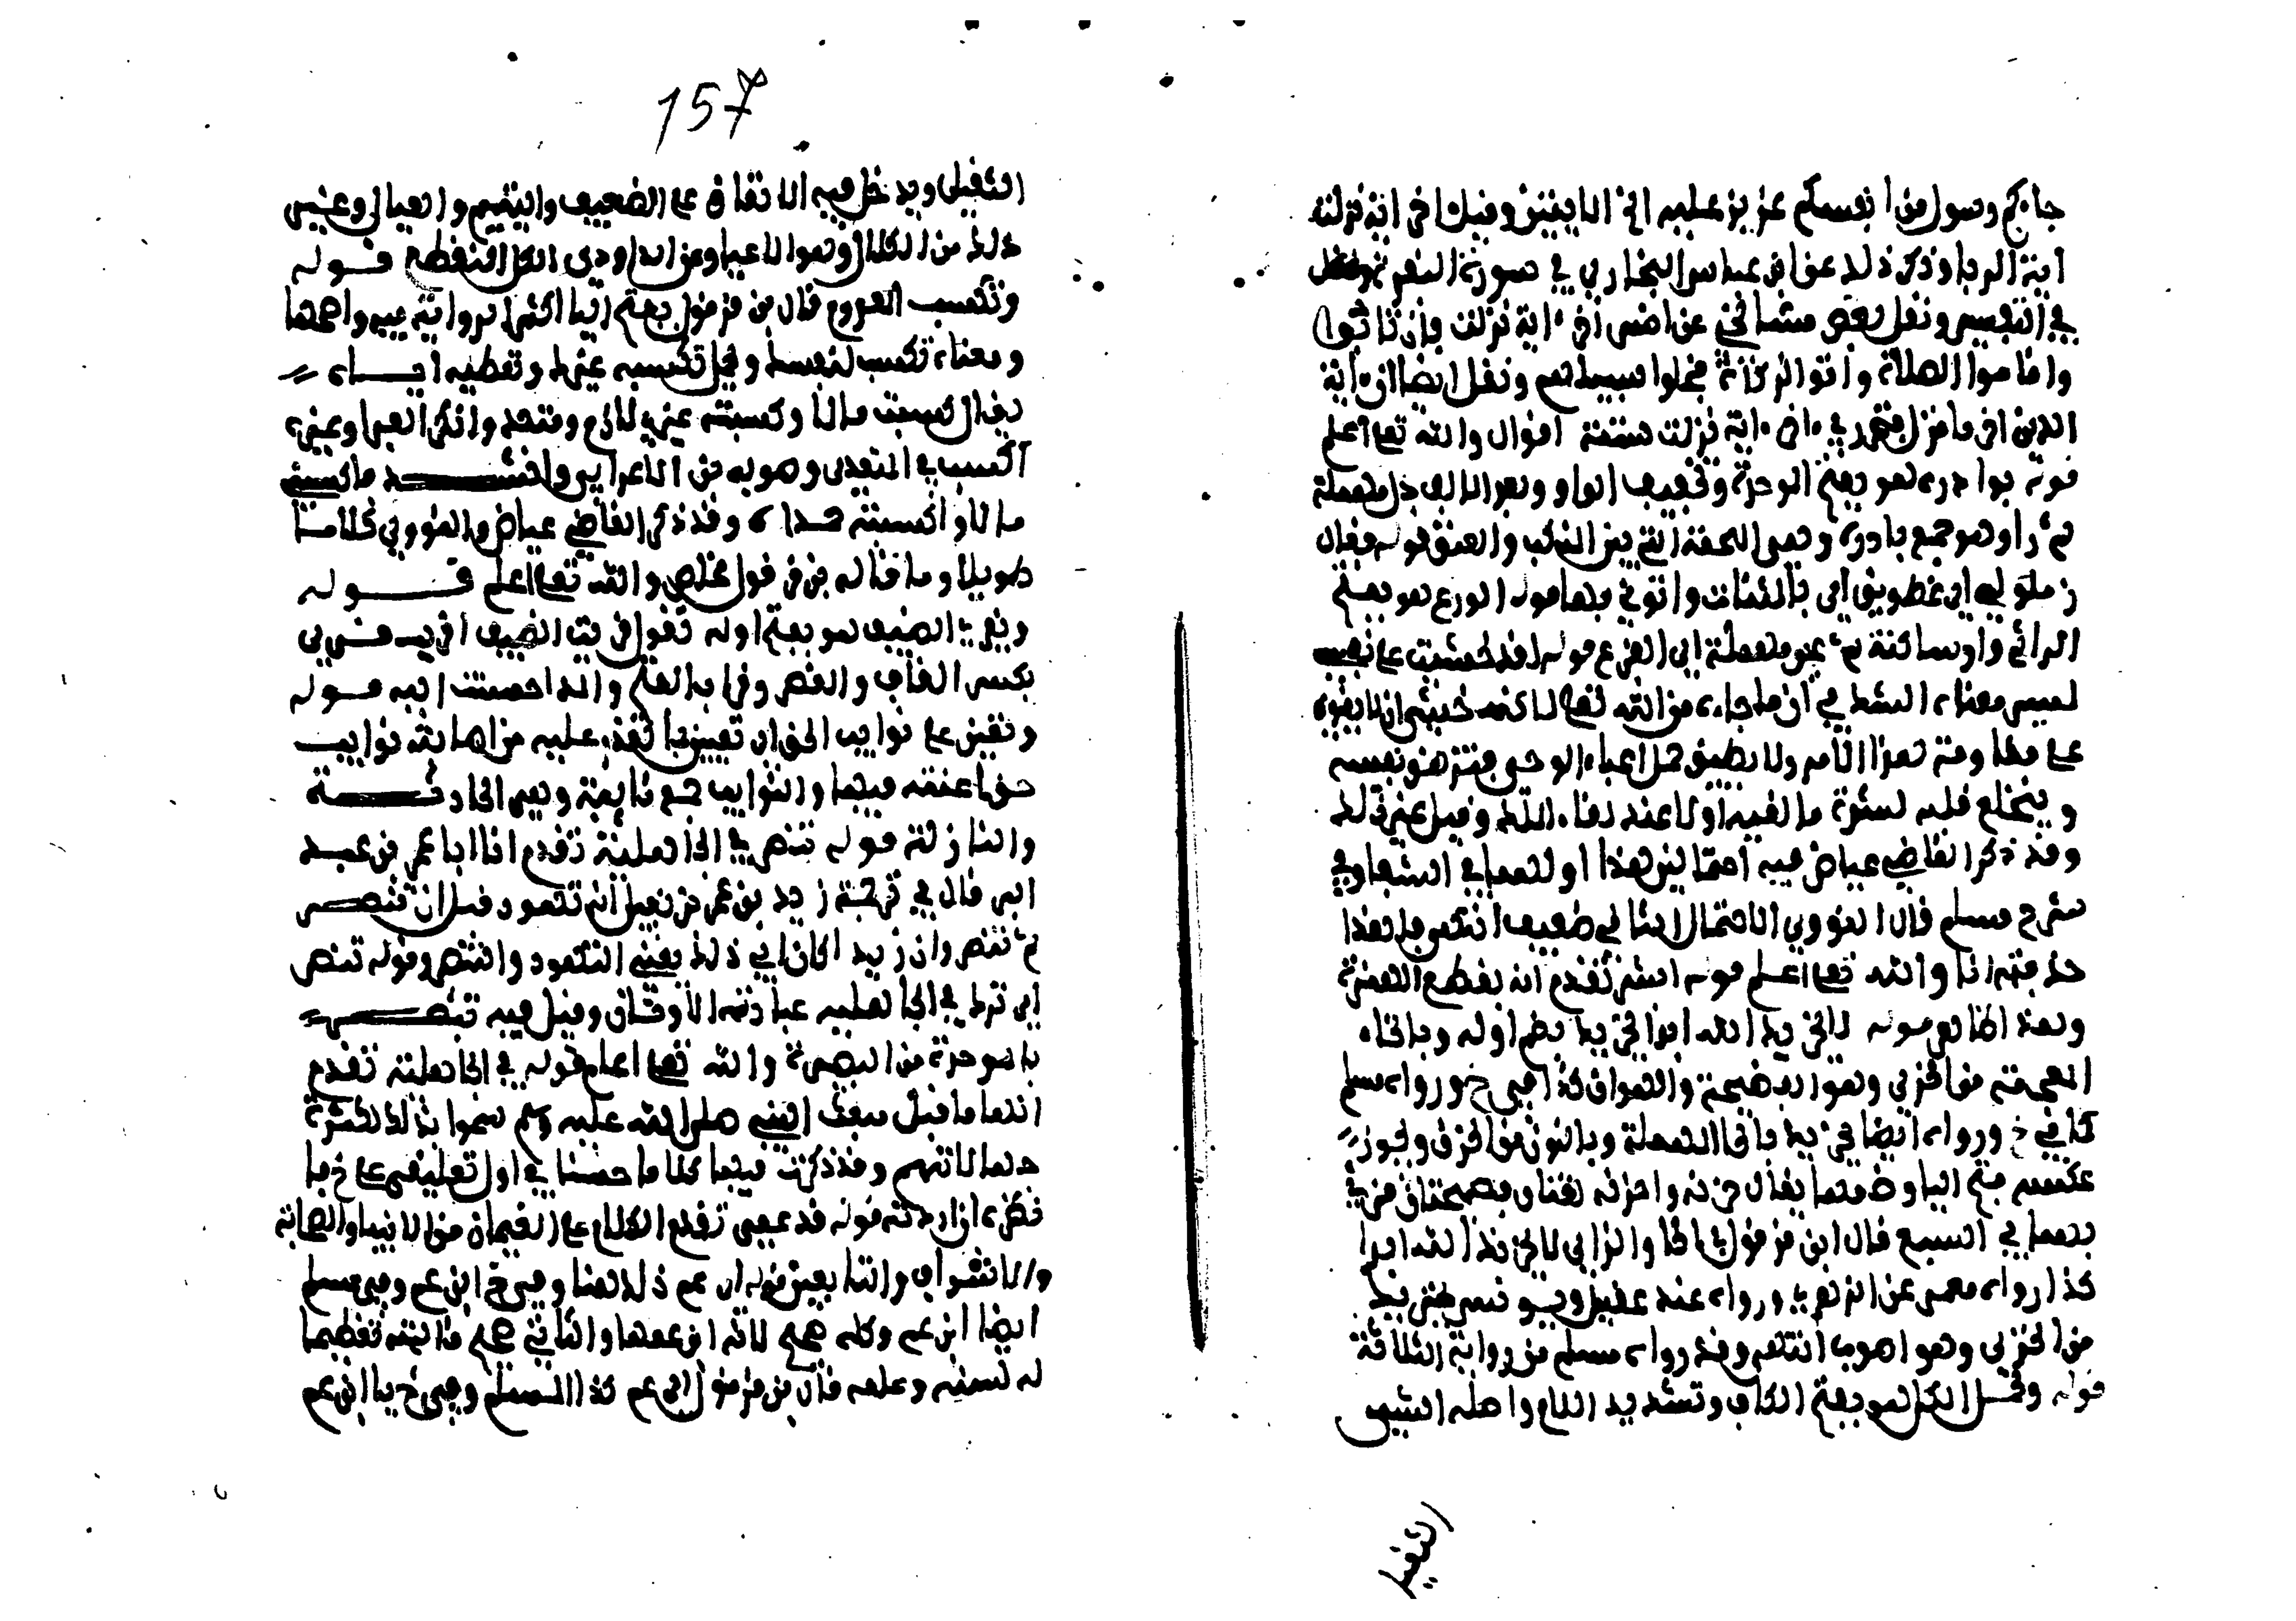 جاءكم رسول من انفسكم عزيز عليه الى الايتين وقيل اخر اية نزلت
اية الربا وذكر ذلك عن ابن عباس البخاري في سورة البقرة
في التفسير ونقل بعض مشائخي عن انس اخر اية نزلت فإن تابوا
واقاموا الصلاة واتوا الزكاة فخلوا سبيلهم ونقل ايضا ان اية
الدين اخر ما نزل فتحرر في اخر اية نزلت ستة اقوال والله تعا اعلم
قوله بوادره هو بفتح الموحدة وتخفيف الواو وبعد الالف دال مهملة
ثم را وهو جمع بادرة وهى اللحمة التي بين المنكب والعنق قوله فقال
زملوني اي غطوني اي بالثياب ولفوني بها قوله الروع هو بفتح
الرائ واو ساكنة ثم عين مهملة اي الفزع قوله لقد خشيت على نفسي
ليس معناه الشك في ان ما جاءه من الله تعا لاكنه خشي ان لا يقوى
على مقاومة هذا الامر ولا يطيق حمل اعباء الوحي فتزهق نفسه
وينخلع قلبه لشدة ما لقيه اولا عند لقاء الملك وقيل غير ذلك
وقد ذكر القاضي عياض فيه احتمالين هذا اولهما في الشفا وفي
شرح مسلم قال النووي الاحتمال الثاني ضعيف انتهى فلهذا
حذفته انا والله تعا اعلم قوله ابشر تقدم انه بقطع الهمزة
وهذا ظاهر قوله لا يخزيك الله ابدا يخزيك بضم اوله وبالخاء
المعجمة من الخزي وهو الفضيحة والهوان كذا هي خ ورواه مسلم
كما في خ ورواه ايضا يحزنك بالحا المهملة وبالنون من الحزن ويجوز
عكسه فتح اليا وضمها يقال حزنه واحزنه لغتان فصيحتان قرئ
بهما في السبع قال ابن قرقول بالخا والزاي لا يخزيك الله ابدا
كذا رواه معمر عن الزهري ورواه عنه عقيل ويونس يخزيك
من الخزي وهو اصوب انتهى وقد رواه مسلم من رواية الثلاثة
قوله وتحمل الكل هو بفتح الكاف وتشديد اللام واصله الشيء
الثقيل
157
الثقيل ويدخل فيه الانفاق على الضعيف واليتيم والعيال وغيس
ذلك من الكلال وهو الاعيا وعن الداودي الكل المنقطع قوله
وتكسب المعدوم قال بن قرقول بفتح التا اكثر الرواية فيه واصحها
ومعناه تكسب لنفسك وقيل تكسبه غيرك وتعطيه اياه
يقال كسبت مالا وكسبته غيري لازم ومتعد وانكر الفرا وغيره
اكسب في المتعدي وصوبه بن الاعرابي وانشد فاكسبني
مالا واكسبته حمدا وقد ذكر القاضي عياض والنووي كلاما
طويلا وما قاله بن قرقول ملخص والله تعا اعلم قوله
وتقري الضيف هو بفتح اوله تقول قريت الضيف اقريه قرى
بكسر القاف والقصر وقراء بالفتح والمد احسنت اليه قوله
وتعين على نوايب الحق اي تعين بما تقدر عليه من اصابته نوايب
حق اعنته فيها والنوايب جمع نايبة وهي الحادثة
والنازلة قوله تنصر في الجاهلية تقدم ان ابا عمر بن عبد
البر قال في ترجمة زيد بن عمرو بن نفيل انه تهود قبل ان تنصر
ثم تنصر وان زيد اكان ابى ذلك يعني التهود والتنصر وقوله تنصر
اي ترك في الجاهلية عبادة الاوثان وقيل فيه تبصر
بالموحدة من البصيرة والله تعا اعلم قوله في الجاهلية تقدم
انها ما قبل مبعث النبي صلى الله عليه وسلم سموا بذلك لكثرة
جهالاتهم وقد ذكرت فيها كلاما حسنا في اول تعليقي على خ فا
نظره ان اردته قوله قد عمي تقدم الكلام على العميان من الانبيا والصحابة
والاشراف والتابعين قوله ابن عم ذلك هنا وهي خ ابن عم وهي مسلم
ايضا ابن عم وكله صحيح لانه ابن عمها والثاني صحيح قالته تعظيما
له لسنه وعلمه قال بن قرقول اي عم كذا لمسلم وهي خ يا ابن عم